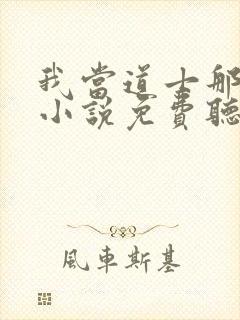 我當道士那
小說免費聽
風車斯基